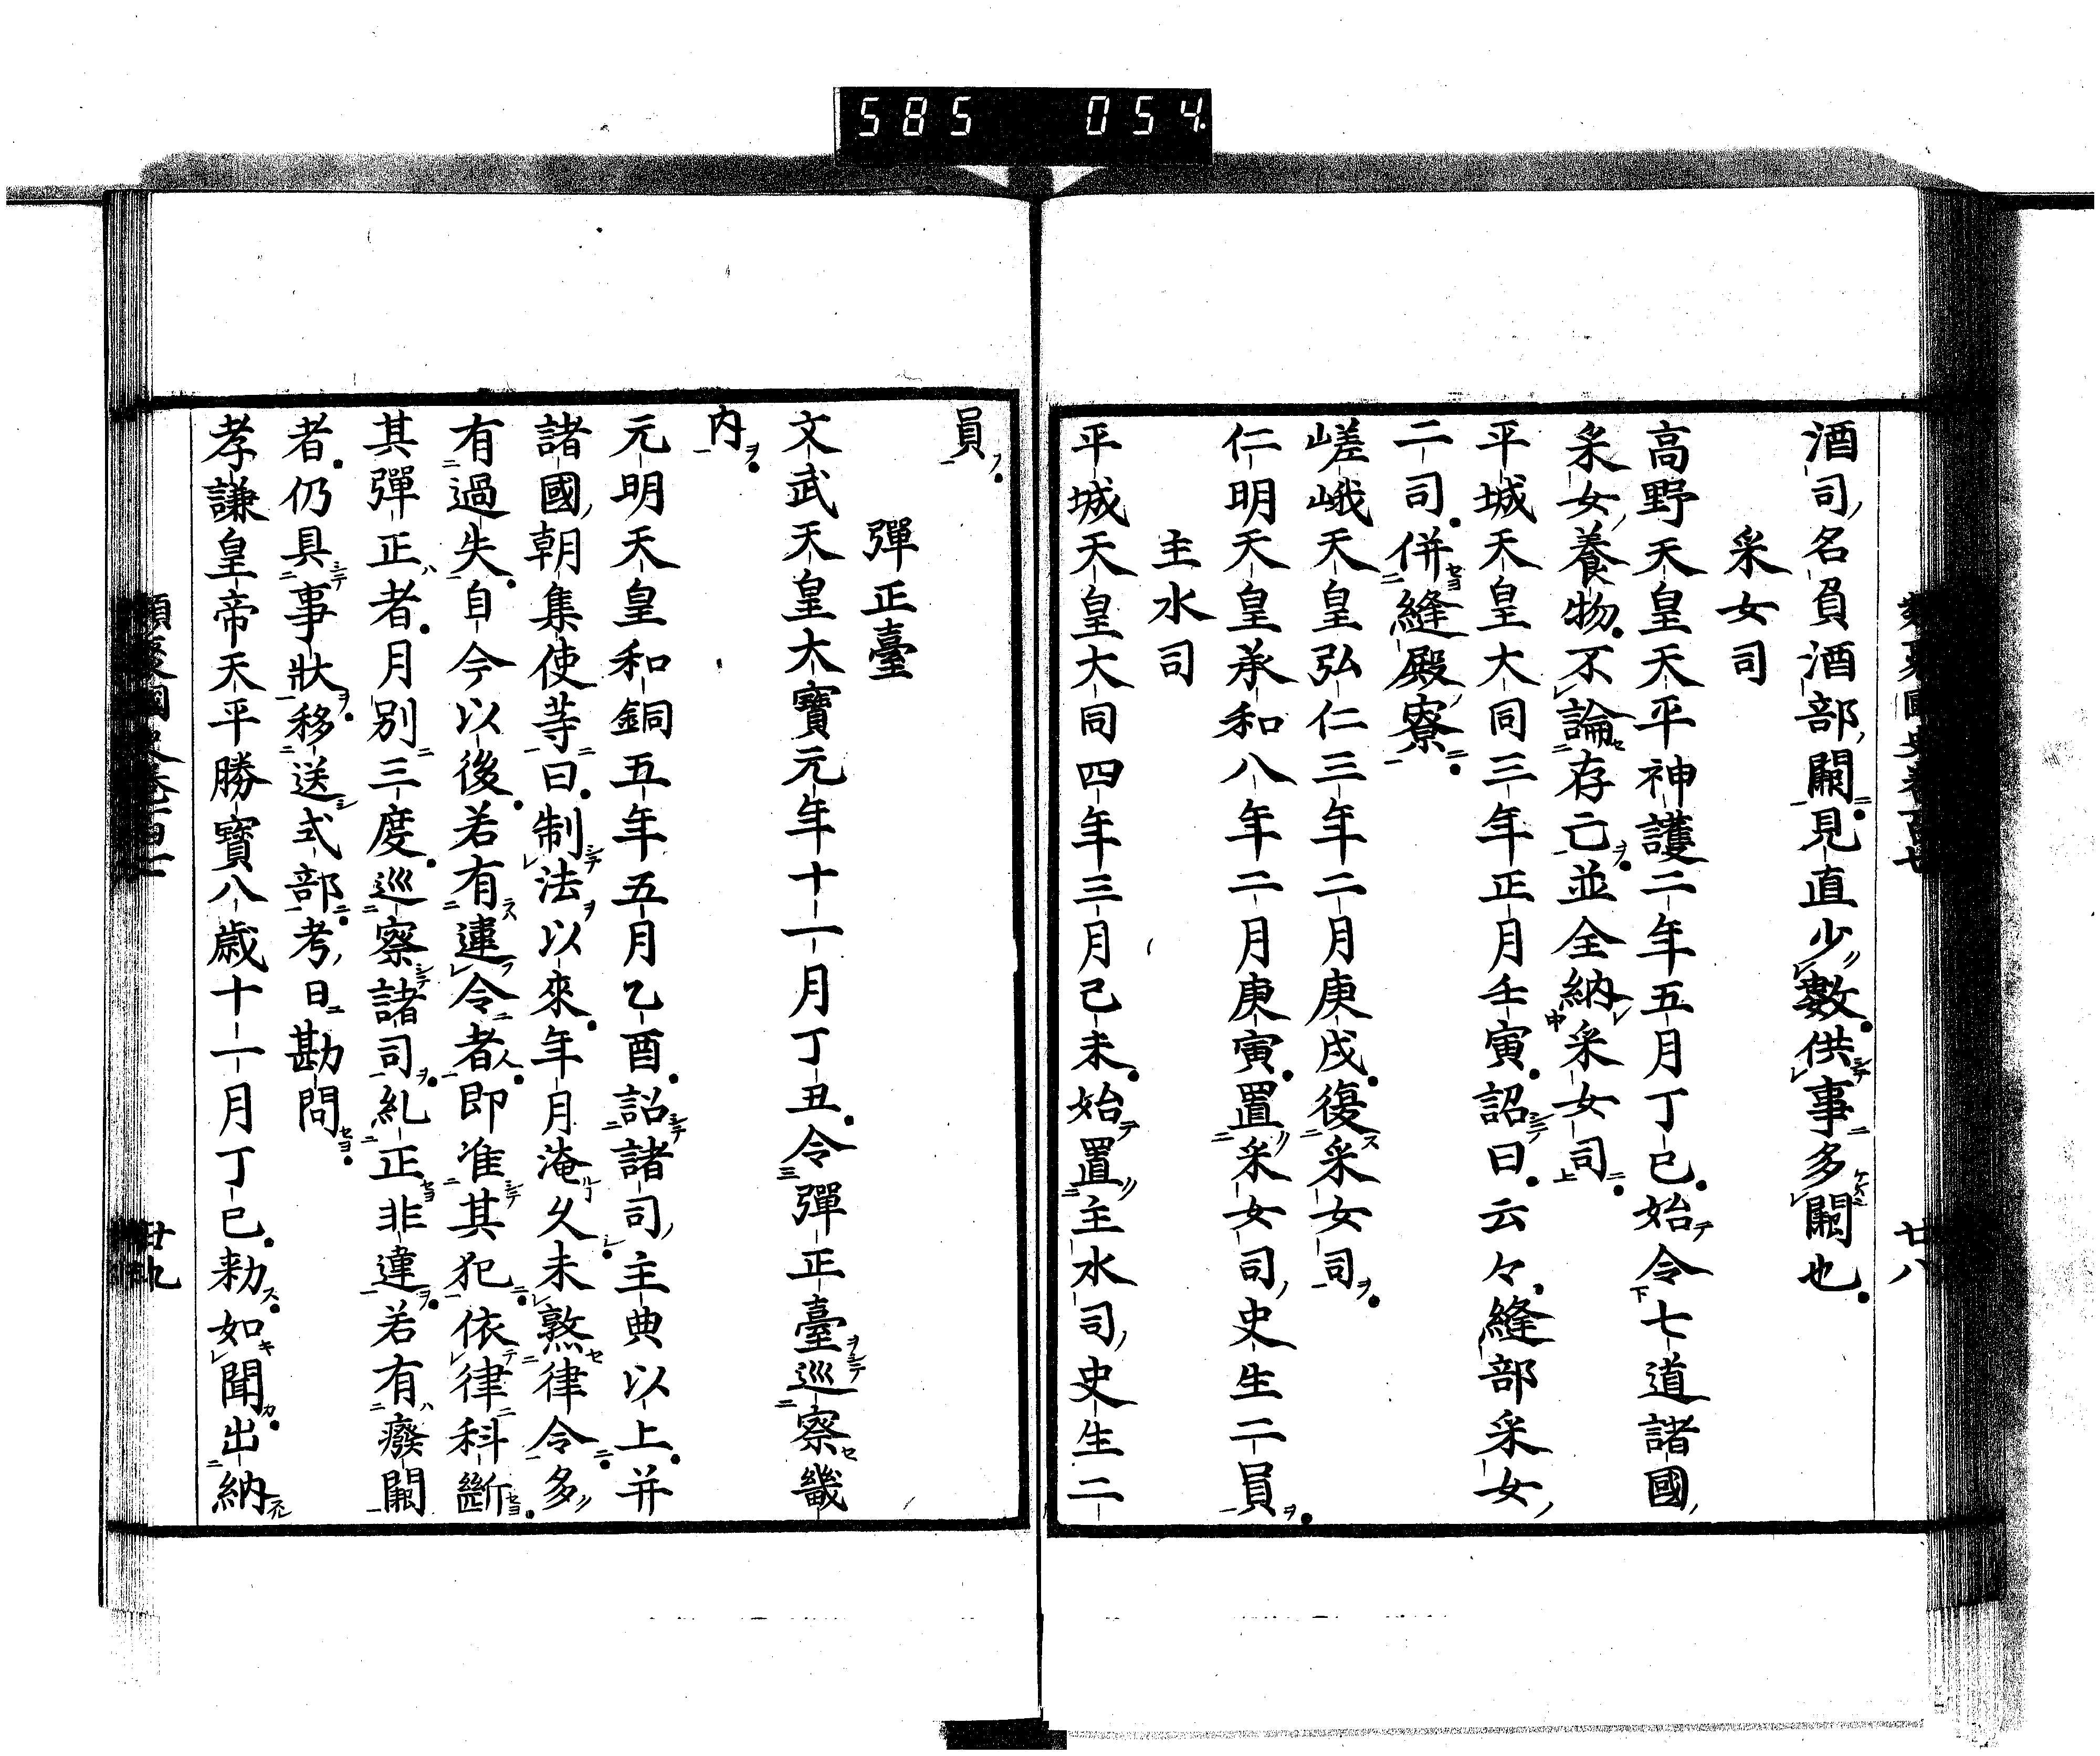 585 054
廿八
酒司名負酒部闕見直少數供事多闕也
采女司
高野天皇天平神護二年五月丁巳始令七道諸國
采女養物不論存亡並全納采女司
平城天皇大同三年正月壬寅詔曰云々縫部采女
二司併縫殿寮
嵯峨天皇弘仁三年二月庚戌復采女司
仁明天皇承和八年二月庚寅置采女司史生二員
主水司
平城天皇大同四年三月己未始置主水司史生二
員
彈正臺
文武天皇大寶元年十一月丁丑令彈正臺巡察畿
内
元明天皇和銅五年五月乙酉詔諸司主典以上并
諸國朝集使等曰制法以來年月淹久未熟律令多
有過失自今以後若有違令者即准其犯依律科斷
其彈正者月別三度巡察諸司糺正非違若有癈闕
者仍具事狀移送式部考日勘問
孝謙皇帝天平勝寶八歳十一月丁巳勅如聞出納
廿九